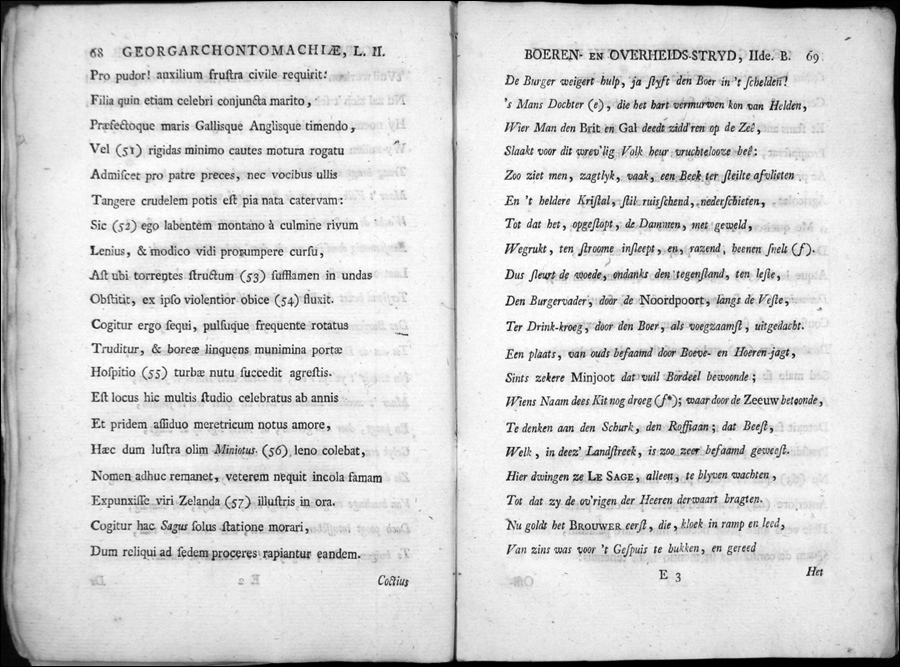 68 GEORGARCHONTOMACHIÆ, L. II.
Pro pudor! auxilium fruſtra civile requirit:
Filia quin etiam celebri conjuncta marito,
Præfectoque maris Gallisque Anglisque timendo,
Vel (51) rigidas minimo cautes motura rogatu
Admiſcet pro patre preces, nec vocibus ullis
Tangere crudelem potis eſt pia nata catervam:
Sic (52) ego labentem montano à culmine rivum
Lenius, & modico vidi prorumpere curſu,
Aſt ubi torrentes ſtructum (53) ſufflamen in undas
Obſtitit, ex ipſo violentior obice (54) fluxit.
Cogitur ergo ſequi, pulſuque frequente rotatus
Truditur, & boreæ linquens munimina portæ
Hoſpitio (55) turbæ nutu ſuccedit agreſtis.
Eſt locus hic multis ſtudio celebratus ab annis
Et pridem aſſiduo meretricum notus amore,
Hæc dum luſtra olim Miniotus (56) leno colebat,
Nomen adhuc remanet, veterem nequit incola famam
Expunxiſſe viri Zelanda (57) illuſtris in ora.
Cogitur hac Sagus ſolus ſtatione morari,
Dum reliqui ad ſedem proceres rapiantur eandem.
E 2
Coctius
BOEREN- EN OVERHEIDS-STRYD, IIde. B. 69
De Burger weigert hulp, ja ſtyft den Boer in 't ſchelden!
's Mans Dochter (e), die het hart vermurwen kon van Helden,
Wier Man den Brit en Gal deedt zidd'ren op de Zeê,
Slaakt voor dit wrev'lig Volk heur vruchtelooze beê:
Zoo ziet men, zagtlyk, vaak, een Beek ter ſteilte afvlieten
En 't heldere Kriſtal, ſtil ruiſchend, nederſchieten,
Tot dat het, opgeſtopt, de Dammen, met geweld,
Wegrukt, ten ſtroome inſleept, en, razend, heenen ſnelt (f).
Dus ſleurt de woede, ondanks den tegenſtand, ten leſte,
Den Burgervader, door de Noordpoort, langs de Veſte,
Ter Drink-kroeg, door den Boer, als voegzaamſt, uitgedacht.
Een plaats, van ouds befaamd door Boeve- en Hoeren-jagt,
Sints zekere Minjoot dat vuil Bordeel bewoonde;
Wiens Naam dees Kit nog droeg (f*); waar door de Zeeuw betoonde,
Te denken aan den Schurk, den Roffiaan; dat Beeſt,
Welk, in deez' Landſtreek, is zoo zeer befaamd geweeſt.
Hier dwingen ze LE SAGE, alleen, te blyven wachten,
Tot dat zy de ov'rigen der Heeren derwaart bragten.
Nu goldt het BROUWER eerſt, die, kloek in ramp en leed,
Van zins was voor 't Geſpuis te bukken, en gereed
E 3
Het